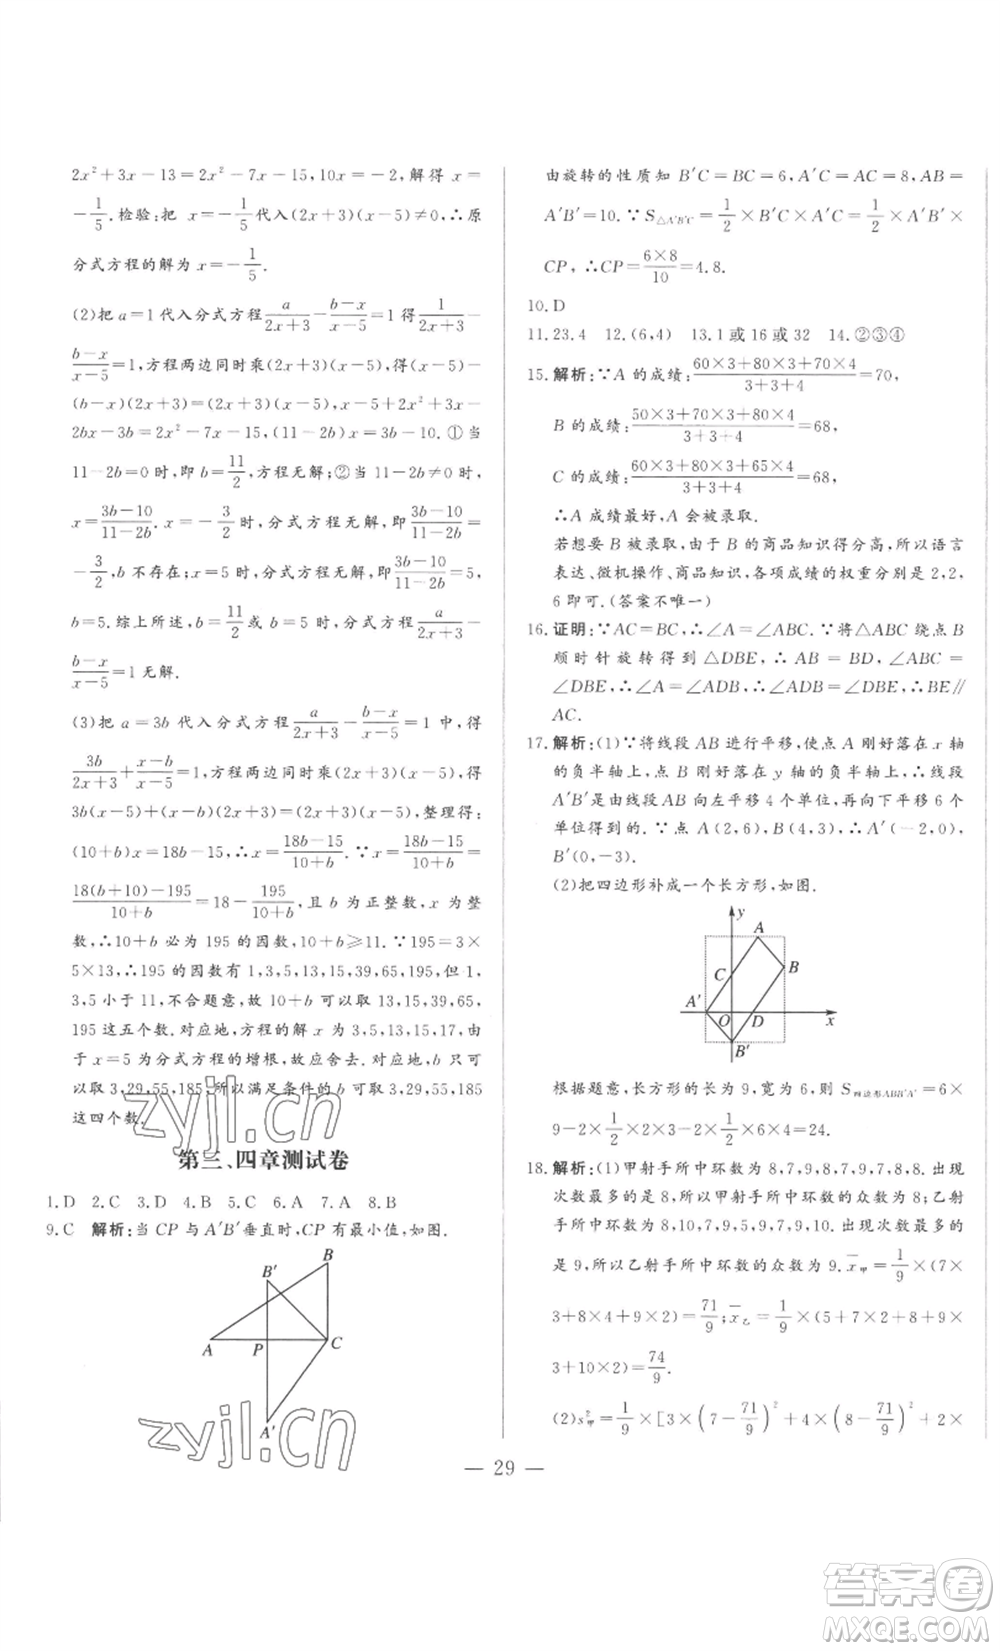 2x²+3x-13=2x²-7x-15,10x=-2,解得 x=
-1/5.检验:把 x=-1/5代入(2x+3)(x-5)≠0,∴原
分式方程的解为 x=-1/5.
(2)把 a=1代入分式方程a/(2x+3)-(b-x)/(x-5)=1得1/(2x+3)-
(b-x)/(x-5)=1,方程两边同时乘(2x+3)(x-5)得(x-5)
-(b-x)(2x+3)=(2x+3)(x-5),x-5+2x²+3x-
2bx-3b=2x²-7x-15,(11-2b)x=3b-10.①当
11-2b=0时,即 b=11/2,方程无解;②当 11-2b≠0时,
x=(3b-10)/(11-2b).x=-3/2时,分式方程无解,即(3b-10)/(11-2b)=
-3/2,b 不存在;x=5时,分式方程无解,即(3b-10)/(11-2b)=5,
b=5.综上所述,b=11/2或 b=5时,分式方程a/(2x+3)-
(b-x)/(x-5)=1无解.
(3)把 a=3b 代入分式方程a/(2x+3)-(b-x)/(x-5)=1 中,得
3b/(2x+3)+(x-b)/(x-5)=1,方程两边同时乘(2x+3)(x-5)得
3b(x-5)+(x-b)(2x+3)=(2x+3)(x-5),整理得:
(10+b)x=18b-15,∴x=(18b-15)/(10+b).∵x=(18b-15)/(10+b)=
(18(b+10)-195)/(10+b)=18-195/(10+b),且 b 为正整数,x 为整
数,∴10+b 必为 195 的因数,10+b≥11.∵195=3×
5×13,∴195 的因数有 1,3,5,13,15,39,65,195.但1,
3,5小于11,不合题意,故10+b可以取13,15,39,65,
195这五个数.对应地,方程的解 x 为3,5,13,15,17.由
于x=5为分式方程的增根,故应舍去.对应地,b 只可
以取3,29,55,185,所以满足条件的b可取3,29,55,185
这四个数.
第三、四章测试卷
1.D 2.C 3.D 4.C 5.C 6.A 7.A 8.B
9.C 解析:当 CP 与 A′B′垂直时,CP 有最小值,如图.
B
B′
A P C
A′
由旋转的性质知 B′C=BC=6,A′C=AC=8,AB=
A′B′=10.∵S△A′B′C=1/2×B′C×A′C=1/2×A′B′×
CP,∴CP=(6×8)/10=4.8.
10.D
11.23.4 12.(6,4) 13.1或16或32 14.②③④
15.解析:∵A 的成绩:(60×3+80×3+70×4)/(3+3+4)=70,
B 的成绩:(50×3+70×3+80×4)/(3+3+4)=68,
C 的成绩:(60×3+80×3+65×4)/(3+3+4)=68,
∴A成绩最好,A会被录取.
若想要B被录取,由于B的商品知识得分高,所以语言
表达、微机操作、商品知识,各项成绩的权重分别是2,2,
6即可.(答案不唯一)
16.证明:∵AC=BC,∴∠A=∠ABC.∵将△ABC绕点B
顺时针旋转得到△DBE,∴AB=BD,∠ABC=
∠DBE,∴∠A=∠ADB=∠ABC=∠DBE,∴BE∥
AC.
17.解析:(1)∵将线段AB进行平移,使点A刚好落在x轴
的负半轴上,点B刚好落在y轴的负半轴上,∴线段
A′B′是由线段AB向左平移4个单位,再向下平移6个
单位得到的.∵点A(2,6),B(4,3),∴A′(-2,0),
B′(0,-3).
(2)把四边形补成一个长方形,如图.
y
A
C B
A′ O D x
B′
根据题意,长方形的长为9,宽为6,则S四边形ABB′A′=6×
9-2×1/2×2×3-2×1/2×4×6=24.
18.解析:(1)甲射手所中环数为8,7,9,8,7,8,7,8,8.出现
次数最多的是8,所以甲射手所中环数的众数为8;乙射
手所中环数为8,10,7,9,5,9,7,9,10.出现次数最多的
是9,所以乙射手所中环数的众数为9.x̄甲=1/9×(7×
3+8×5+9×1)=71/9;x̄乙=1/9×(5+7×2+8+9×
3+10×2)=74/9.
(2)s²甲=1/9×[3×(7-71/9)²+4×(8-71/9)²+2×
— 29 —
zyjl.cn
zyjl.cn
答案卷
MXQE.COM